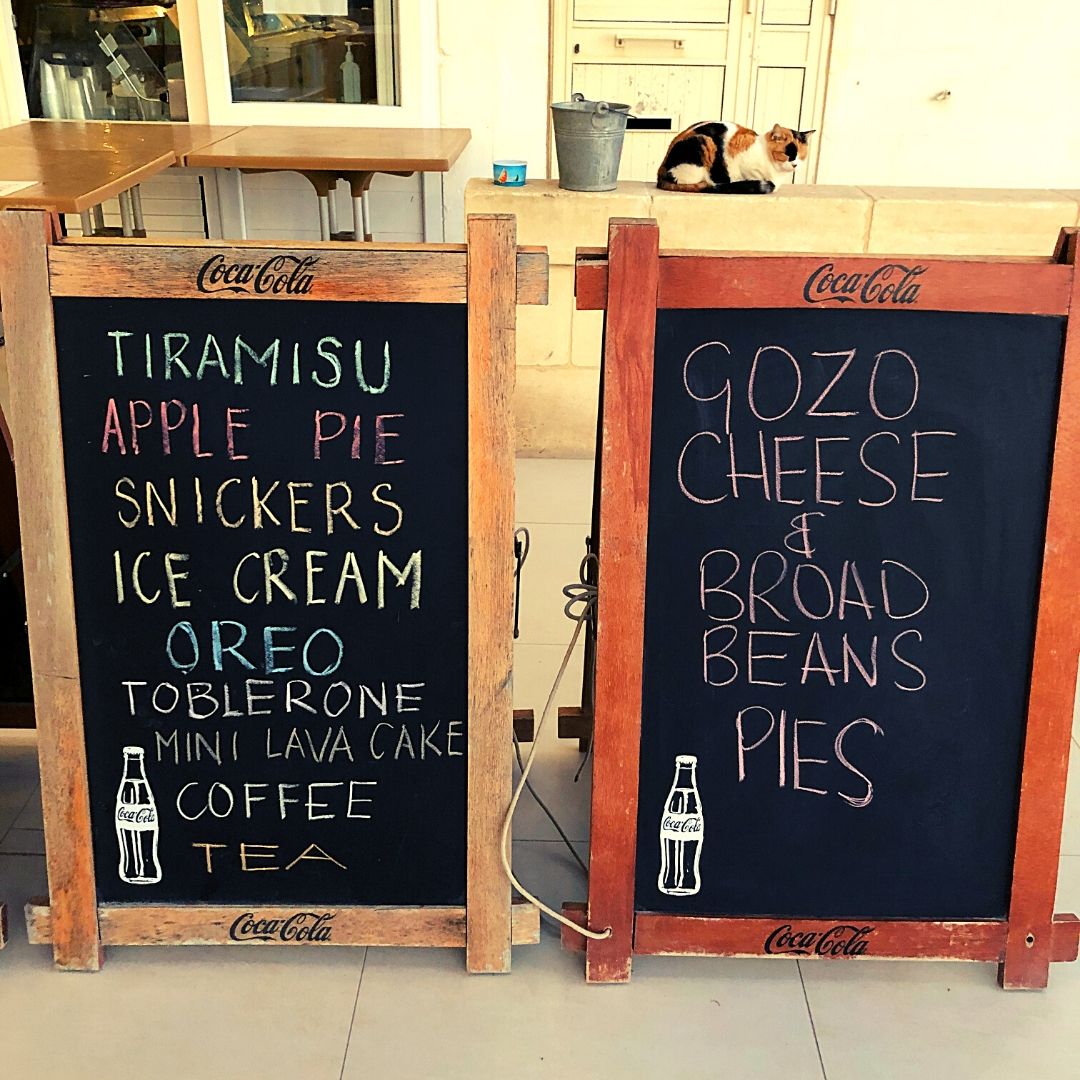 Coca-Cola
TIRAMISU
APPLE PIE
SNICKERS
ICE CREAM
OREO
TOBLERONE
MINI LAVA CAKE
COFFEE
TEA
Coca-Cola
Coca-Cola
Coca-Cola
GOZO
CHEESE
&
BROAD
BEANS
PIES
Coca-Cola
Coca-Cola